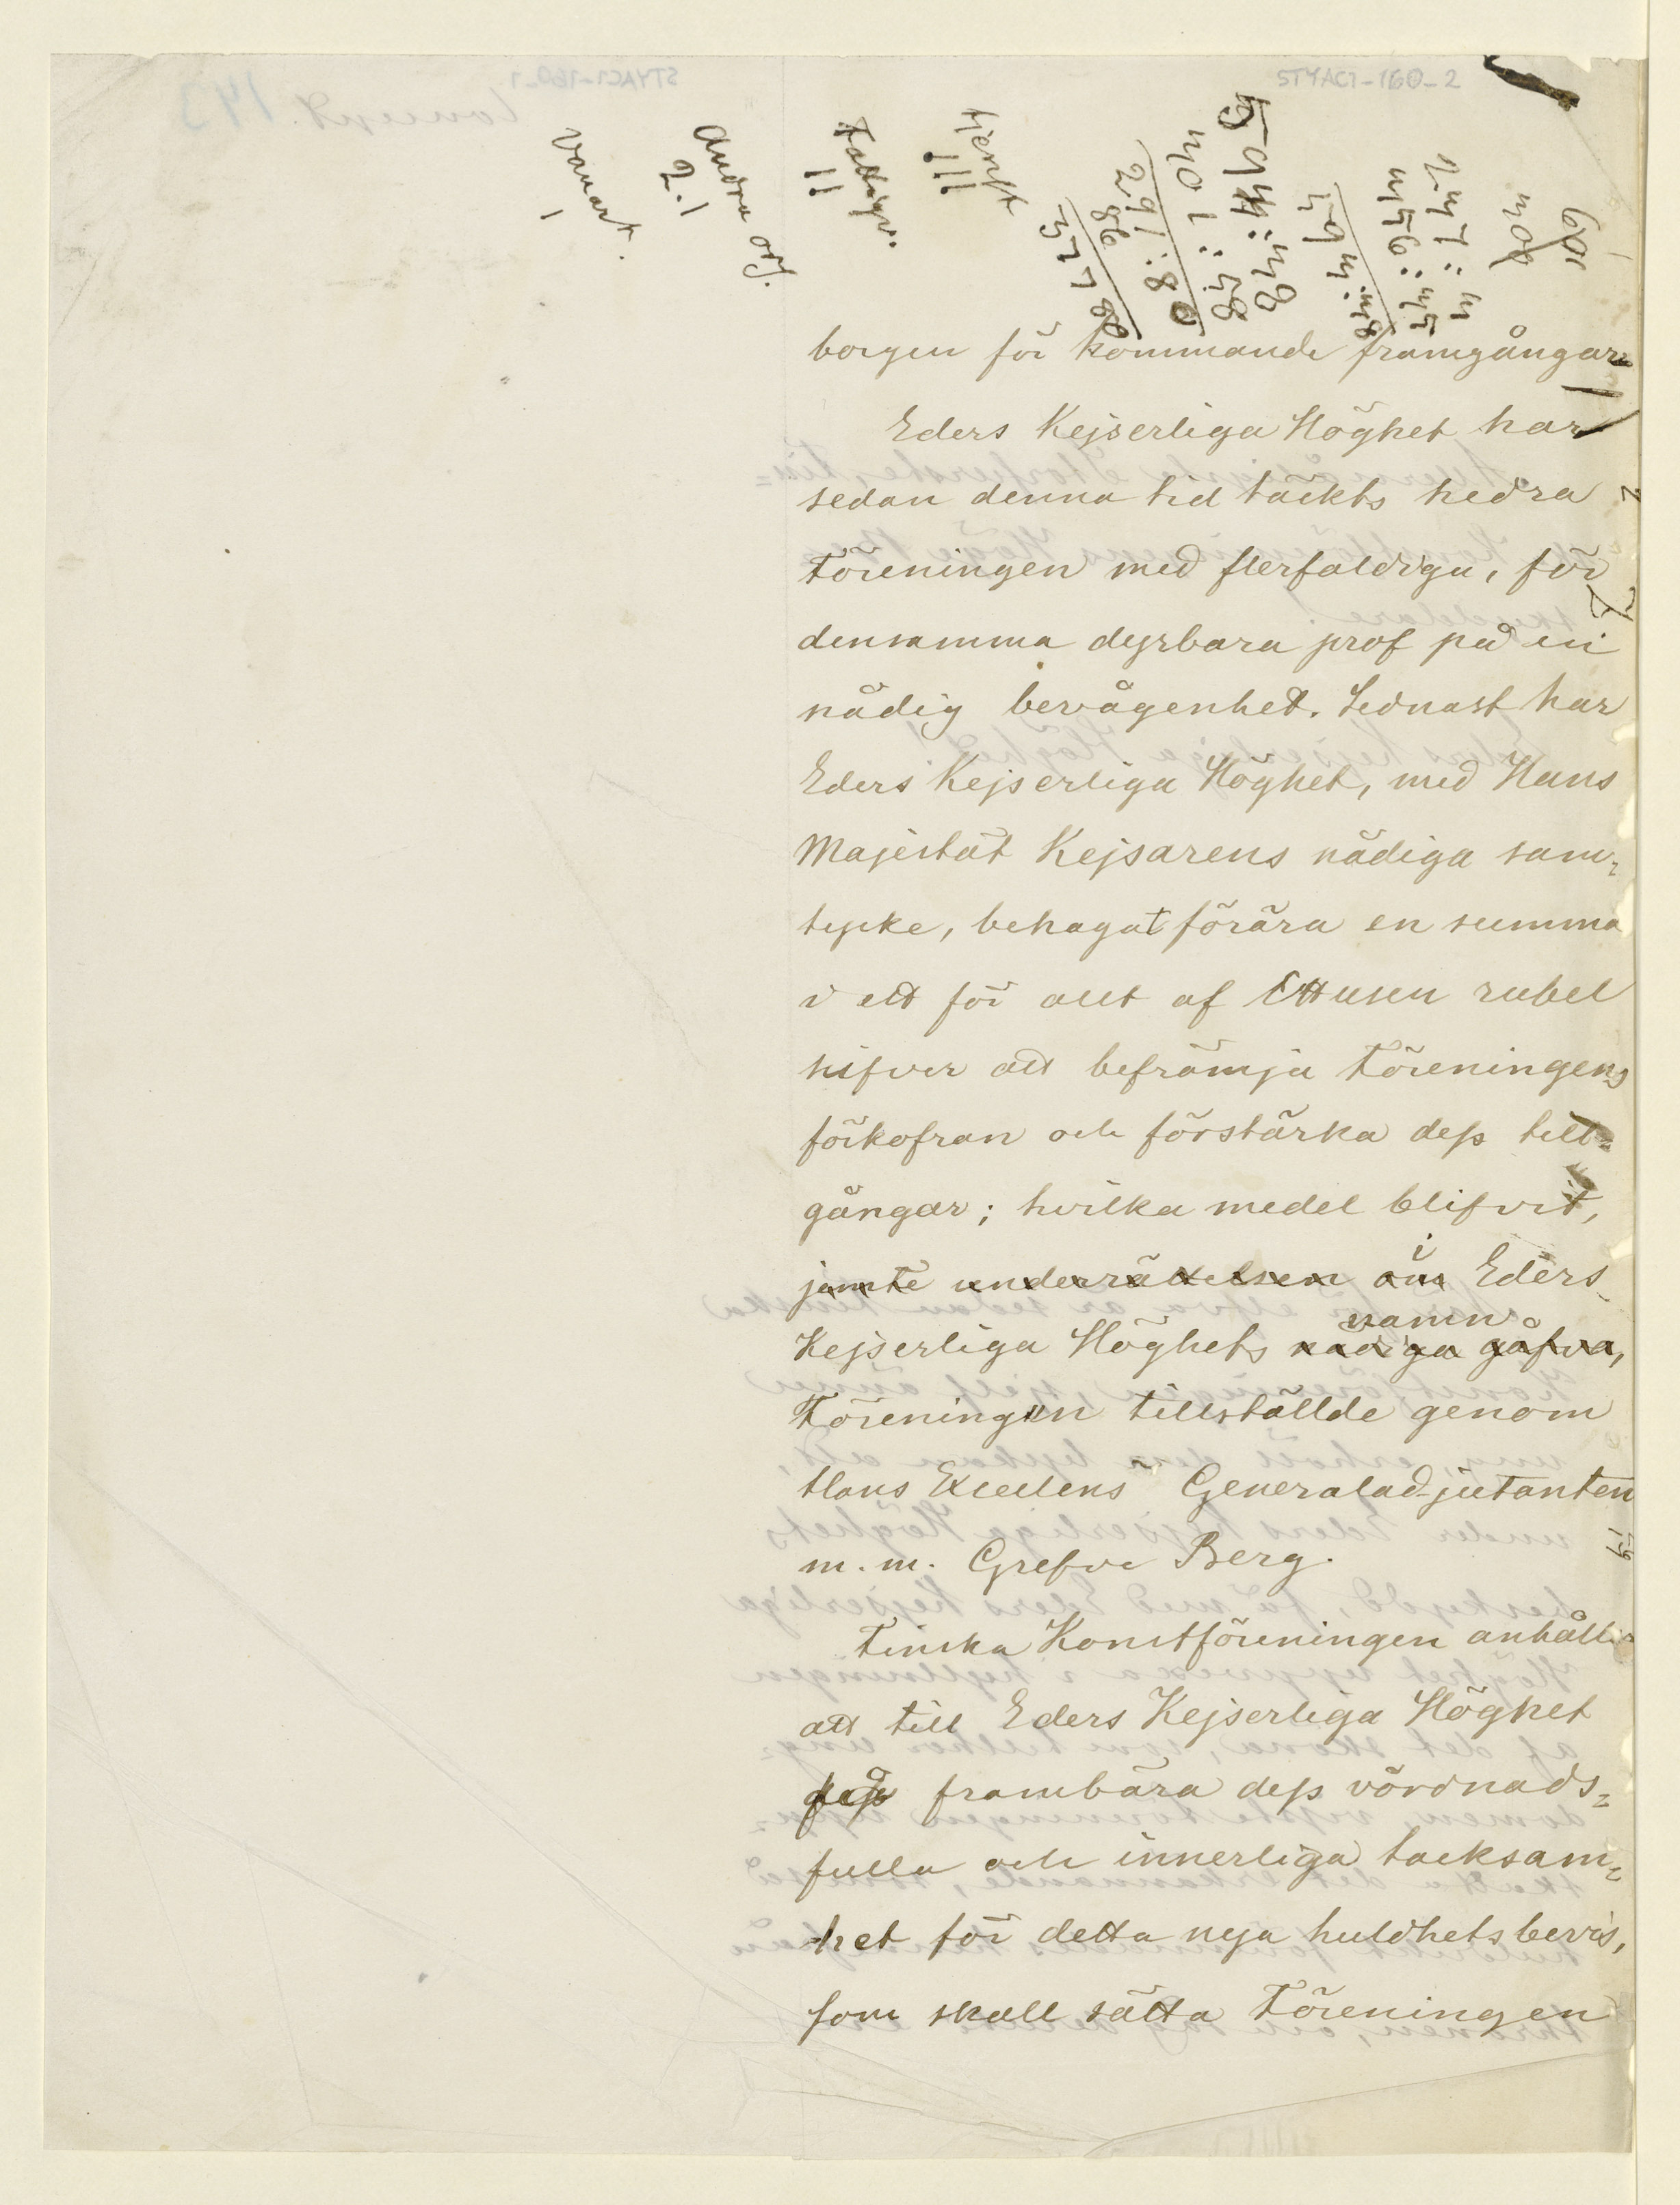 STYAC1-160-2
tjenst
!!!
Fattigv.
!!
Andra
2.1
1
borgen för kommande framgångar
Eders Kejserliga Höghet har
sedan denna tid täckts hedra
Föreningen med flerfaldiga, för
densamma dyrbara prof på en
nådig bevågenhet. Sednast har
Eders Kejserliga Höghet, med Hans
Majestät Kejsarens nådiga sam-
tycke, behagat förära en summa
i ett för allt af Ettusen rubel
silfver att befrämja Föreningens
förkofran och förstärka dess till-
gångar; hvilka medel blifvit,
jemte underrättelsen om i Eders
namn
Kejserliga Höghets nådiga gåfva,
Föreningen tillställde genom
Hans Excellens Generaladjutanten
m.m. Grefve Berg.
Finska Konstföreningen anhåller
att till Eders Kejserliga Höghet
få frambära dess vördnads-
fulla och innerliga tacksam-
het för detta nya huldhetsbevis,
som skall sätta Föreningen